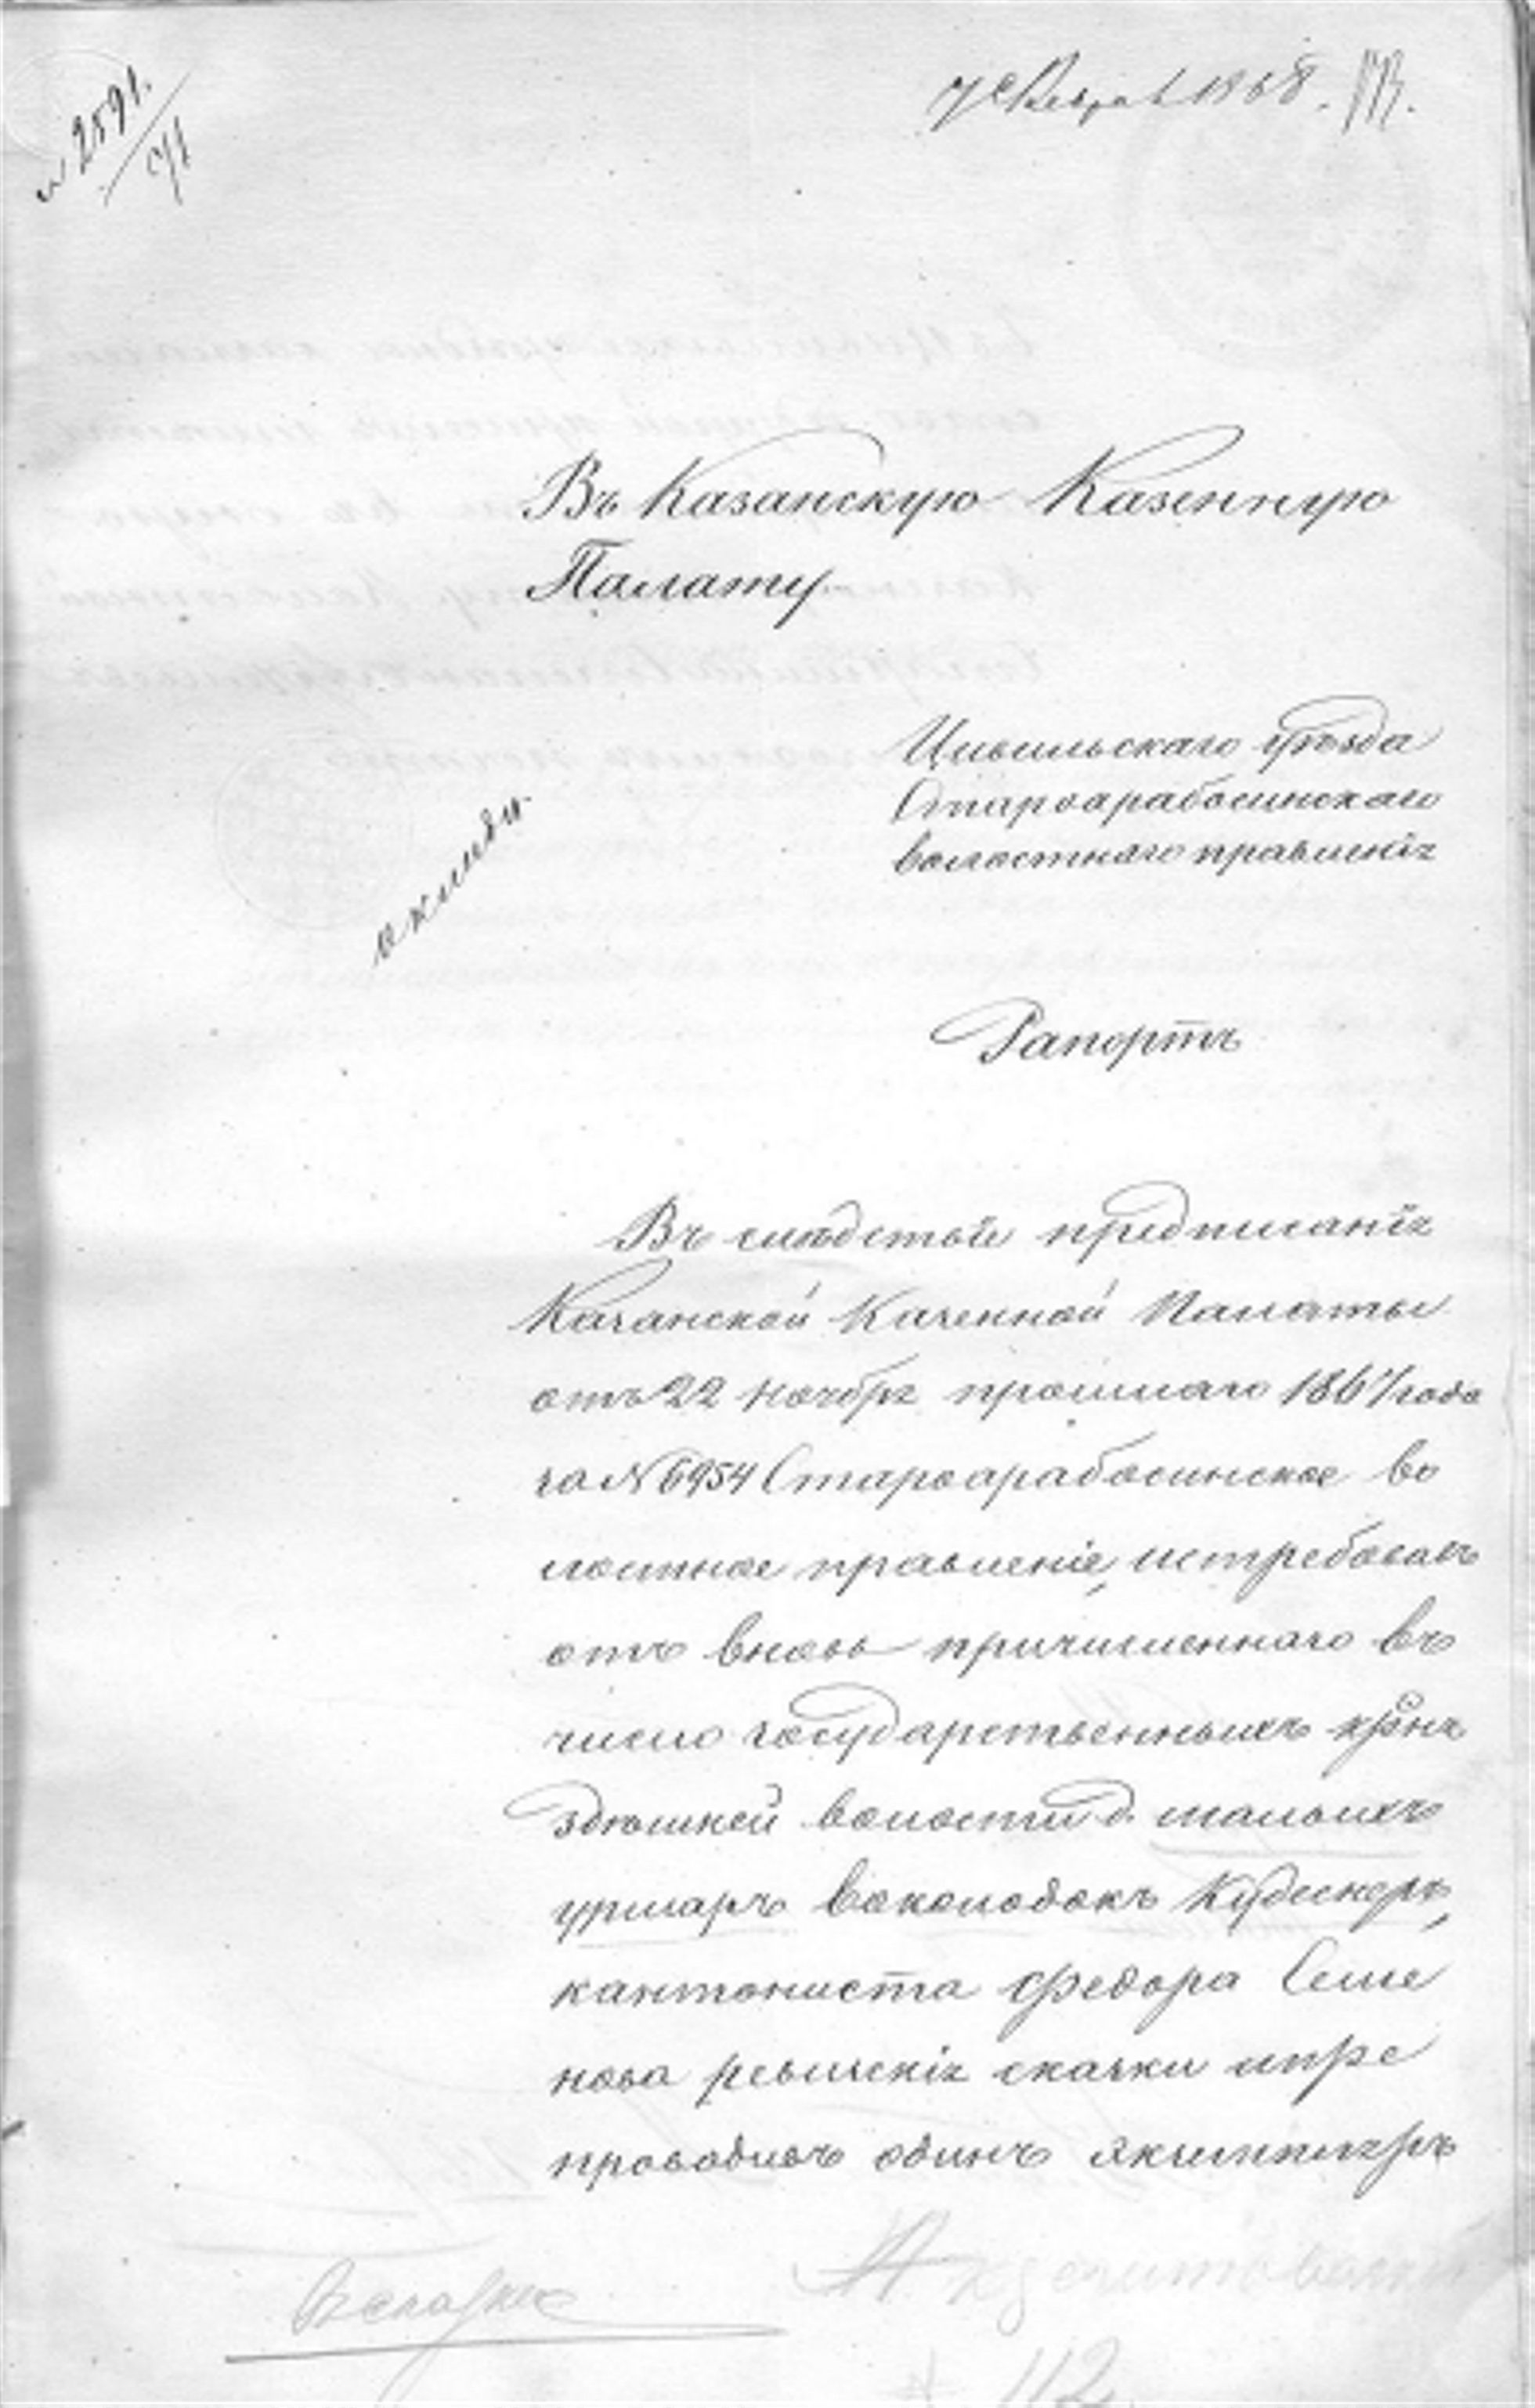 № 2591.
71
7 Февраля 1868.
Въ Казанскую Казенную
Палату.
Цивильскаго уѣзда
Староарабосинскаго
волостнаго правленія
Рапортъ
Въ слѣдствіе предписанія
Казанской Казенной Палаты
отъ 22 Ноября прошлаго 1867 года
за N 6954 Староарабосинское во
лостное правленіе, истребовавъ
отъ вновь причисленнаго въ
число государственныхъ крнъ
здѣшней волости д. малыхъ
урмаръ воколодокъ Кудеснеръ,
кантониста Федора Семе
нова ревизскія сказки ипре
проводивъ одинъ экземпляръ
112